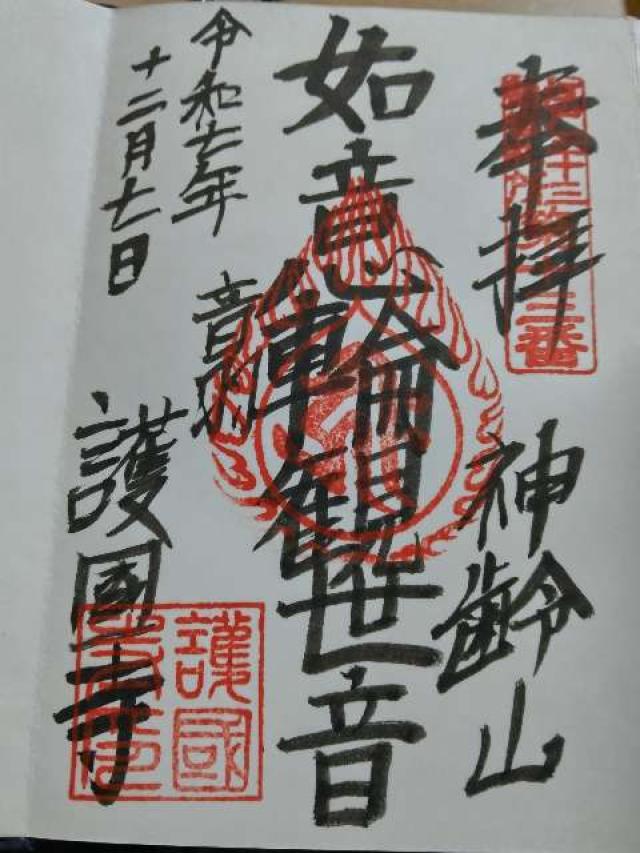 奉拝
第十三番
神齢山
如意輪観世音
音羽
護國寺
令和七年
十二月七日
護國